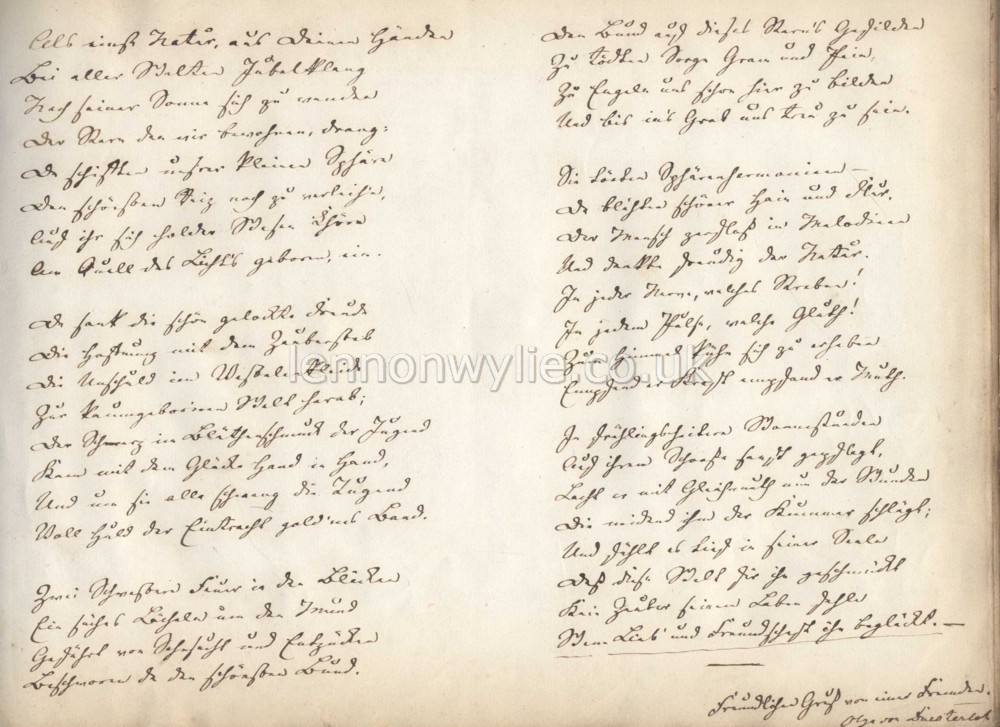 Als einst Natur, aus Deinen Händen
Bei aller Welten Jubelklang
Nach seiner Sonne sich zu wenden
Der Stern den wir bewohnen, drang:
Da schifften unsrer kleinen Sphäre
Den schönsten Reiz noch zu verleihn,
Auf ihr sich holder Wesen Chöre
Am Quell des Lichts geboren, ein.
Da sank die schön gelockte Freude
Die Hoffnung mit dem Zauberstab
Die Unschuld im Vestalenkleide
Zur kaumgebornen Welt herab;
Der Scherz im Blüthenschmuck der Jugend
Kam mit dem Glücke Hand in Hand,
Und um sie alle schwang die Tugend
Voll Huld der Eintracht gold'nes Band.
Zwei Schwestern Feuer in den Blicken
Ein süßes Lächeln um den Mund
Geführt von Sehnsucht und Entzücken
Beschworen da den schönsten Bund.
Den Bund auf dieses Stern's Gefilden
Zu tödten Sorge Gram und Pein,
Zu Engeln uns schon hier zu bilden
Und bis in's Grab uns treu zu sein.
Sie Sphärenharmonieen –
Da blühten schöner Hain und Flur,
Der Mensch zerfloß in Melodieen
Und dankte freudig der Natur.
In jeder Nerve, welches Streben!
In jedem Pulse, welche Gluth!
Zum Himmel kühn sich zu erheben
Empfand er Kraft empfand er Muth.
In frühlingsheitern Wonnestunden
Auf ihrem Schooße sanft gepflegt,
Lacht er mit Gleichmuth nun der Wunden
Die neidend ihm der Kummer schlägt;
Und fühlt es tief in seiner Seele
Daß diese Welt für ihn geschmückt
Kein Zauber seinem Leben fehle
Wenn Lieb' und Freundschaft ihn beglückt. –
Freundlichen Gruß von einer Fremden.
Olga von
lennonwylie.co.uk